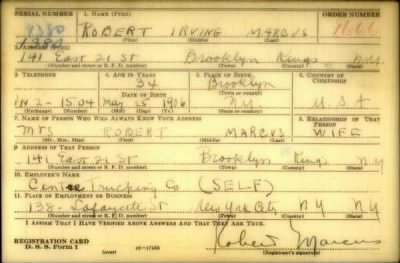 SERIAL NUMBER 1. NAME (Print) ORDER NUMBER
ROBERT IRVING MARCUS
(First) (Middle) (Last)
2. ADDRESS (Print)
141 East 21 St Brooklyn Kings N.Y.
(Number and street or R. F. D. number) (Town) (County) (State)
3. TELEPHONE 4. AGE IN YEARS 5. PLACE OF BIRTH 6. COUNTRY OF CITIZENSHIP
34 Brooklyn
DATE OF BIRTH
IN 2-1504 May 25 1906 N Y U.S.A
(Exchange) (No.) (Mo.) (Day) (Yr.) (State or county)
7. NAME OF PERSON WHO WILL ALWAYS KNOW YOUR ADDRESS 8. RELATIONSHIP OF THAT PERSON
MRS ROBERT MARCUS WIFE
(Mr., Mrs., Miss) (First) (Middle) (Last)
9. ADDRESS OF THAT PERSON
141 East 21 St Brooklyn Kings N.Y
(Number and street or R. F. D. number) (Town) (County) (State)
10. EMPLOYER'S NAME
Trucking Co (SELF)
11. PLACE OF EMPLOYMENT OR BUSINESS
138- Lafayette St New York City N Y N Y
(Number and street or R. F. D. number) (Town) (County) (State)
I AFFIRM THAT I HAVE VERIFIED ABOVE ANSWERS AND THAT THEY ARE TRUE.
REGISTRATION CARD
D. S. S. Form 1 (over) 16-17105
Robert Marcus
(Registrant's signature)